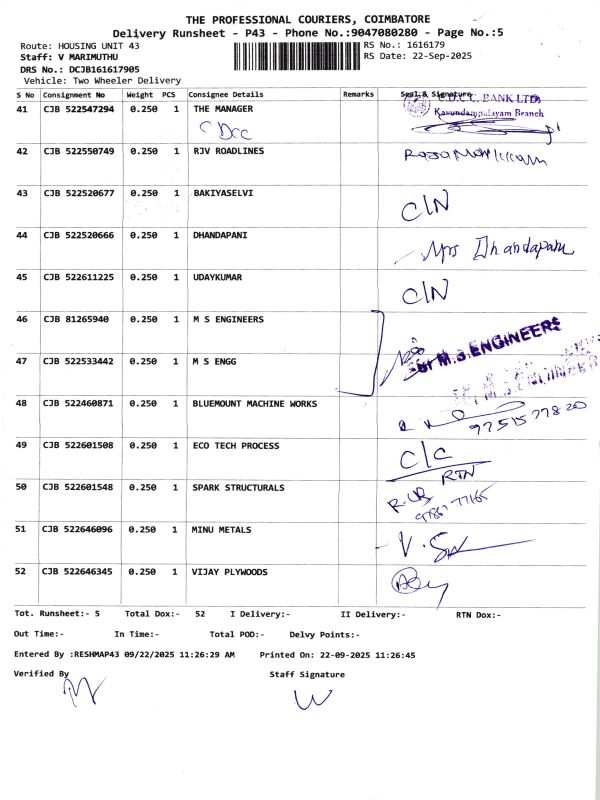 THE PROFESSIONAL COURIERS, COIMBATORE
Delivery Runsheet - P43 - Phone No.:9047080280 - Page No.:5
Route: HOUSING UNIT 43 RS No.: 1616179
Staff: V MARIMUTHU RS Date: 22-Sep-2025
DRS No.: DCJB161617905
Vehicle: Two Wheeler Delivery
S No Consignment No Weight PCS Consignee Details Remarks Seal & Signature
41 CJB 522547294 0.250 1 THE MANAGER C.D.C.C. BANK LTD
CDCC Kavundampalayam Branch
42 CJB 522550749 0.250 1 RJV ROADLINES
43 CJB 522520677 0.250 1 BAKIYASELVI C/N
44 CJB 522520666 0.250 1 DHANDAPANI Mrs Dhandapani
45 CJB 522611225 0.250 1 UDAYKUMAR C/N
46 CJB 81265940 0.250 1 M S ENGINEERS For M.S.ENGINEERS
47 CJB 522533442 0.250 1 M S ENGG
48 CJB 522460871 0.250 1 BLUEMOUNT MACHINE WORKS
49 CJB 522601508 0.250 1 ECO TECH PROCESS C/C
RTN
50 CJB 522601548 0.250 1 SPARK STRUCTURALS
51 CJB 522646096 0.250 1 MINU METALS
52 CJB 522646345 0.250 1 VIJAY PLYWOODS
Tot. Runsheet:- 5 Total Dox:- 52 I Delivery:- II Delivery:- RTN Dox:-
Out Time:- In Time:- Total POD:- Delvy Points:-
Entered By :RESHMAP43 09/22/2025 11:26:29 AM Printed On: 22-09-2025 11:26:45
Verified By Staff Signature